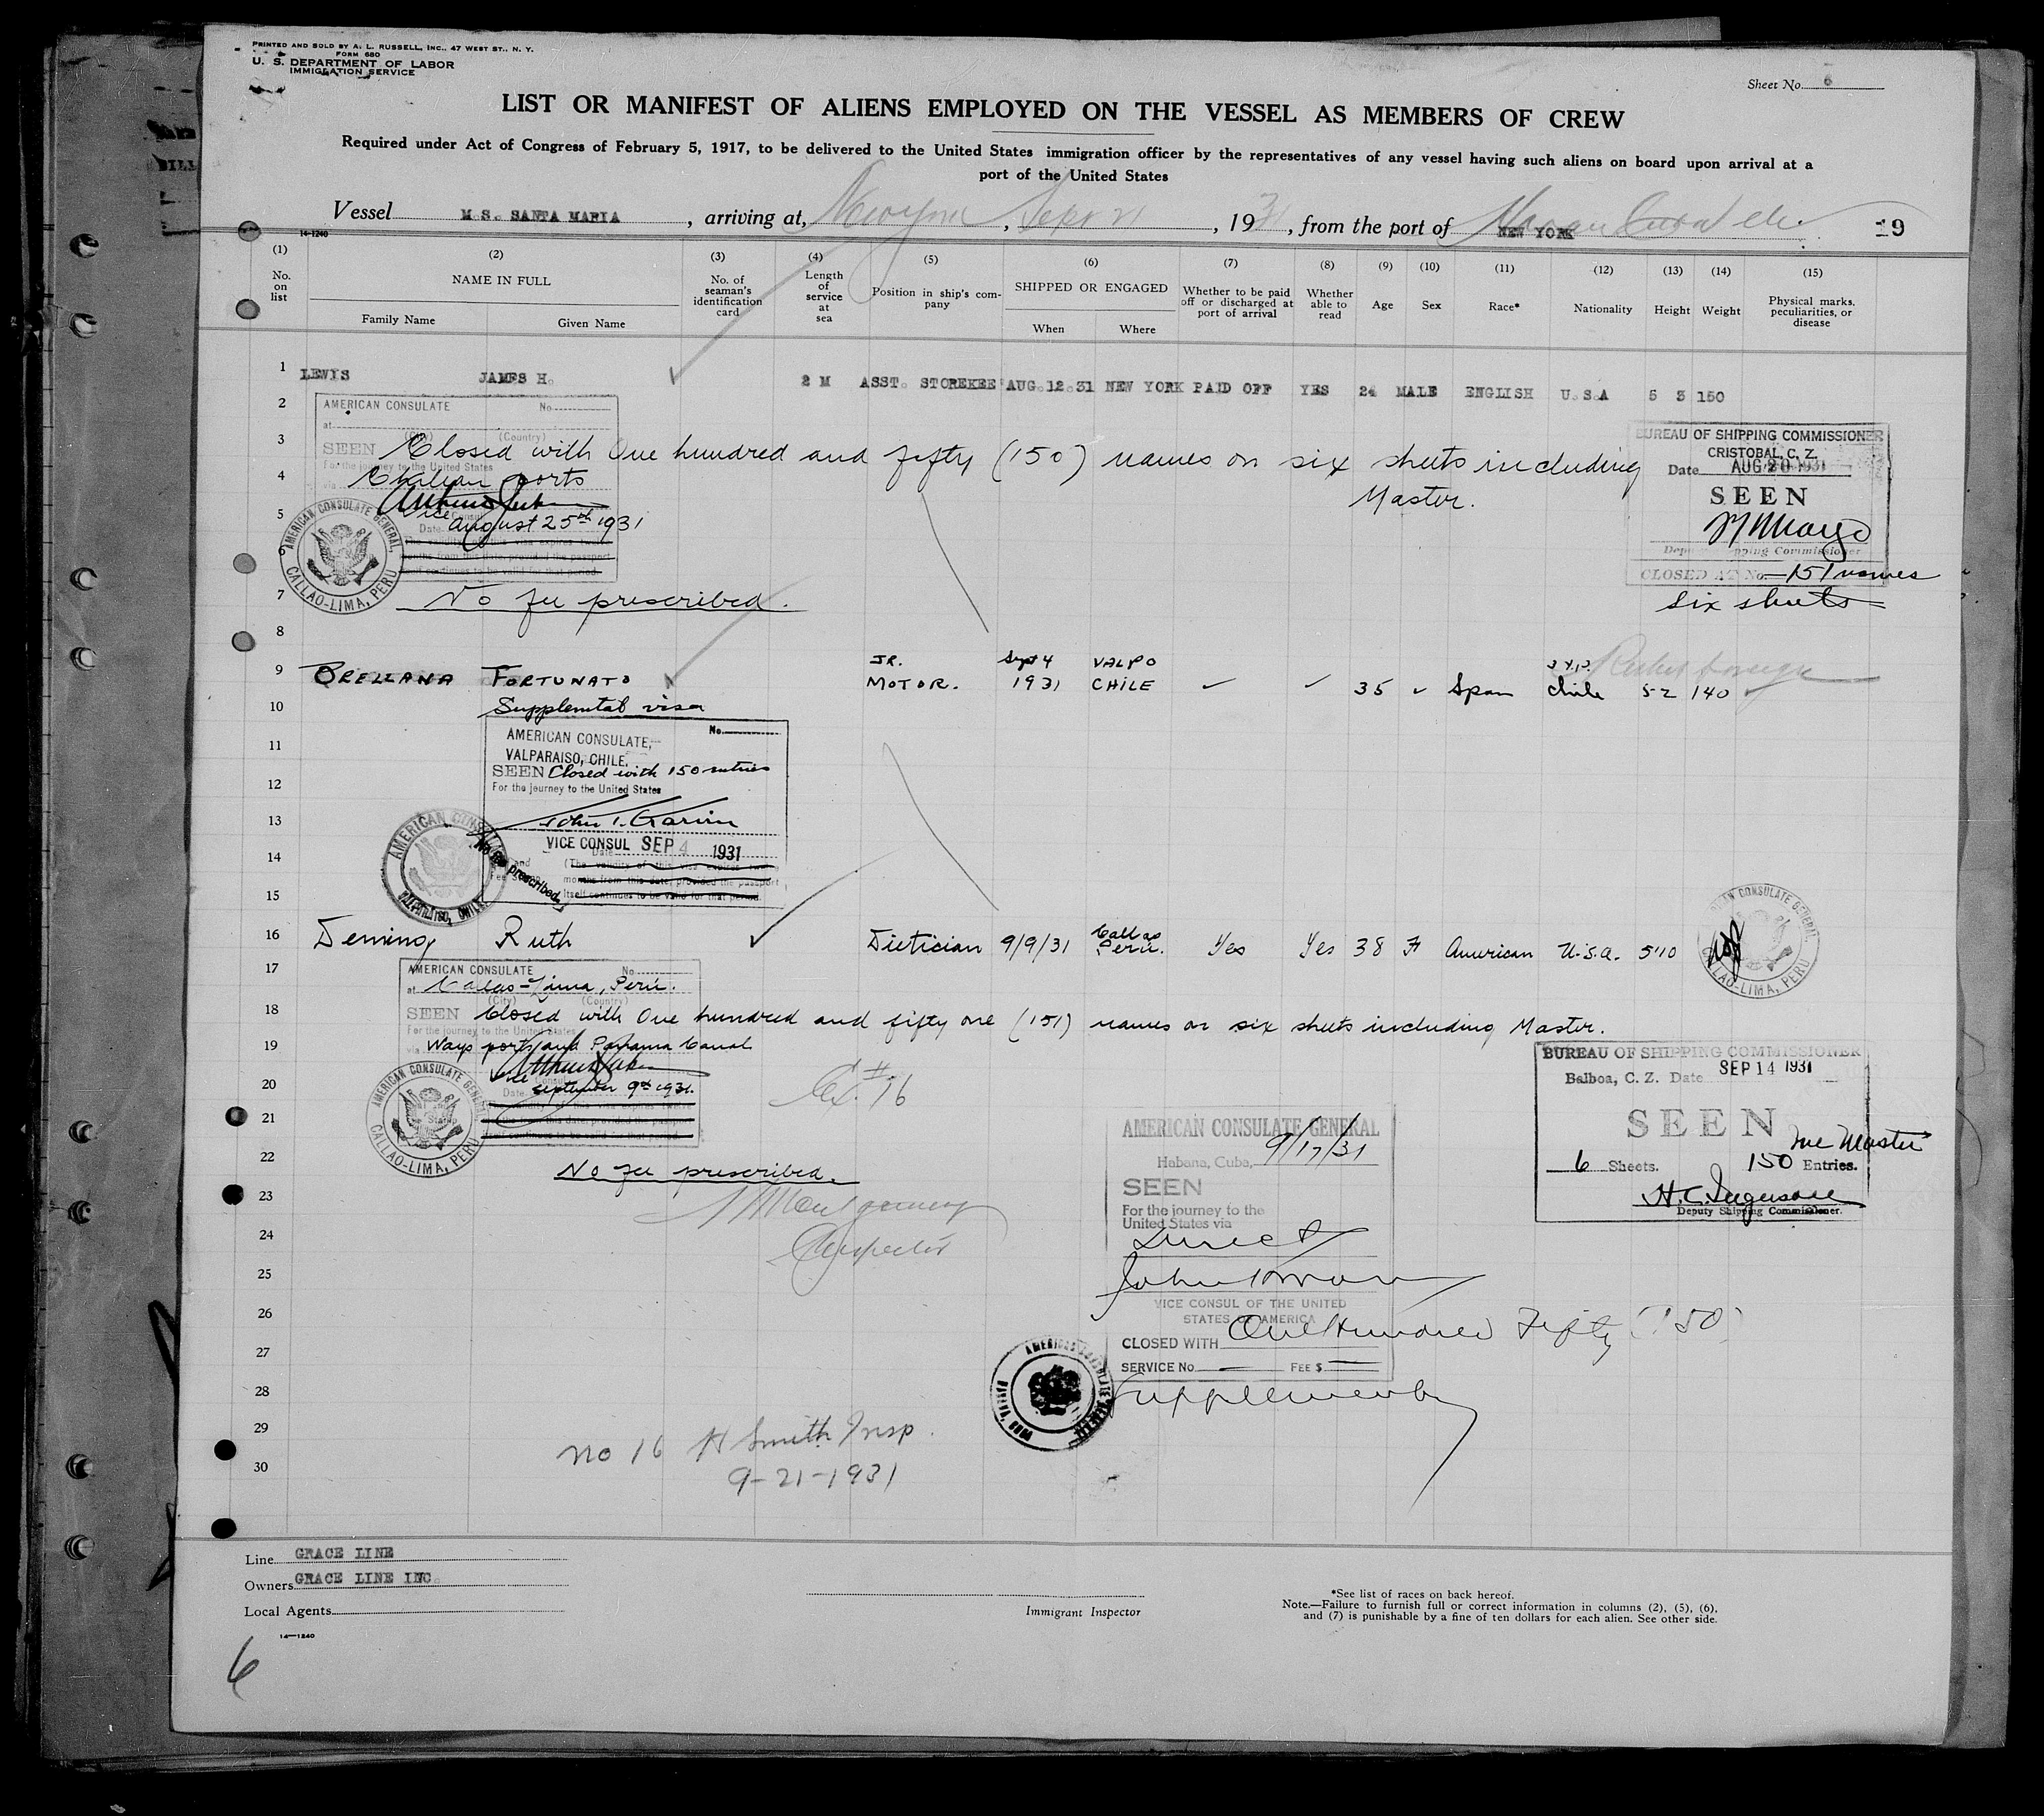 PRINTED AND SOLD BY A. L. RUSSELL, INC., 47 WEST ST., N. Y.
FORM 680
U. S. DEPARTMENT OF LABOR
IMMIGRATION SERVICE
Sheet No. 6
LIST OR MANIFEST OF ALIENS EMPLOYED ON THE VESSEL AS MEMBERS OF CREW
Required under Act of Congress of February 5, 1917, to be delivered to the United States immigration officer by the representatives of any vessel having such aliens on board upon arrival at a
port of the United States
Vessel M.S. SANTA MARIA, arriving at, New York, Sept 21, 1931, from the port of NEW YORK 19
14-1240
(1) (2) (3) (4) (5) (6) (7) (8) (9) (10) (11) (12) (13) (14) (15)
No. on list NAME IN FULL Family Name Given Name No. of seaman's identification card Length of service at sea Position in ship's company SHIPPED OR ENGAGED When Where Whether to be paid off or discharged at port of arrival Whether able to read Age Sex Race* Nationality Height Weight Physical marks, peculiarities, or disease
1 LEWIS JAMES H. 2 M ASST. STOREKEE AUG.12.31 NEW YORK PAID OFF YES 24 MALE ENGLISH U.S.A 5 3 150
2 AMERICAN CONSULATE No.
at
(City) (Country)
3 SEEN Closed with One hundred and fifty (150) names on six sheets including
Master.
For the journey to the United States
4 via Chilean ports
5 Vice Consul
Date August 25th 1931
6
AMERICAN CONSULATE GENERAL, CALLAO-LIMA, PERU
7 No fee prescribed.
BUREAU OF SHIPPING COMMISSIONER
CRISTOBAL, C. Z.
Date AUG 20 1931
SEEN
Deputy Shipping Commissioner
CLOSED AT No. 151 names
six sheets
8
9 ORELLANA FORTUNATO JR. MOTOR. Sept 4 1931 VALPO CHILE 35 Span Chile 5-2 140
10 Supplemtal visa
11 AMERICAN CONSULATE, No.
VALPARAISO, CHILE.
SEEN Closed with 150 entries
12 For the journey to the United States
13
14 VICE CONSUL SEP 4 1931
Date
(The validity of this visa expires
months from this date, provided the passport
15 itself continues to be valid for that period.
No fee prescribed
AMERICAN CONSULATE VALPARAISO, CHILE
16 Deming Ruth Dietician 9/9/31 Callao Peru. Yes Yes 38 F American U.S.A. 5'10
AMERICAN CONSULATE GENERAL, CALLAO-LIMA, PERU
17 AMERICAN CONSULATE No.
at Callao-Lima, Peru.
(City) (Country)
18 SEEN Closed with One hundred and fifty one (151) names on six sheets including Master.
For the journey to the United States
19 via Ways ports and Panama Canal
20 Vice Consul
Date September 9th 1931.
21
AMERICAN CONSULATE GENERAL, CALLAO-LIMA, PERU
22 No fee prescribed.
23 Montgomery
24 Inspector
BUREAU OF SHIPPING COMMISSIONER
Balboa, C. Z. Date SEP 14 1931
SEEN
6 Sheets. 150 Entries. Inc Master
Deputy Shipping Commissioner.
AMERICAN CONSULATE GENERAL
Habana, Cuba, 9/17/31
SEEN
For the journey to the
United States via
Direct
25
26 VICE CONSUL OF THE UNITED
STATES OF AMERICA
CLOSED WITH One Hundred Fifty (150)
27 SERVICE No. — FEE $ —
28
29 No 16 H Smith Insp.
30 9-21-1931
Line GRACE LINE
Owners GRACE LINE INC.
Local Agents
Immigrant Inspector
*See list of races on back hereof.
Note.—Failure to furnish full or correct information in columns (2), (5), (6),
and (7) is punishable by a fine of ten dollars for each alien. See other side.
14—1240
6